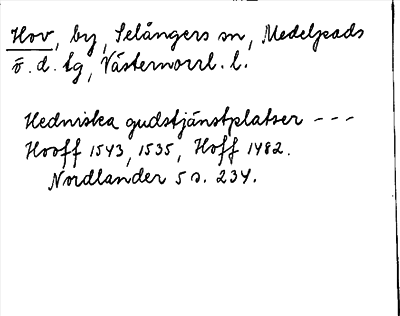 Hov, by, Selångers sn, Medelpads
ö. d. tg, Västernorrl. l.
Hedniska gudstjänstplatser ---
Hooff 1543, 1535, Hoff 1482.
Nordlander 5 s. 234.